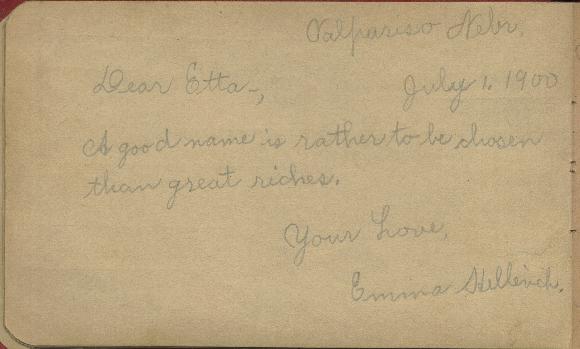 Valpariso Nebr.
Dear Etta-, July 1, 1900
A good name is rather to be chosen
than great riches.
Your Love,
Emma